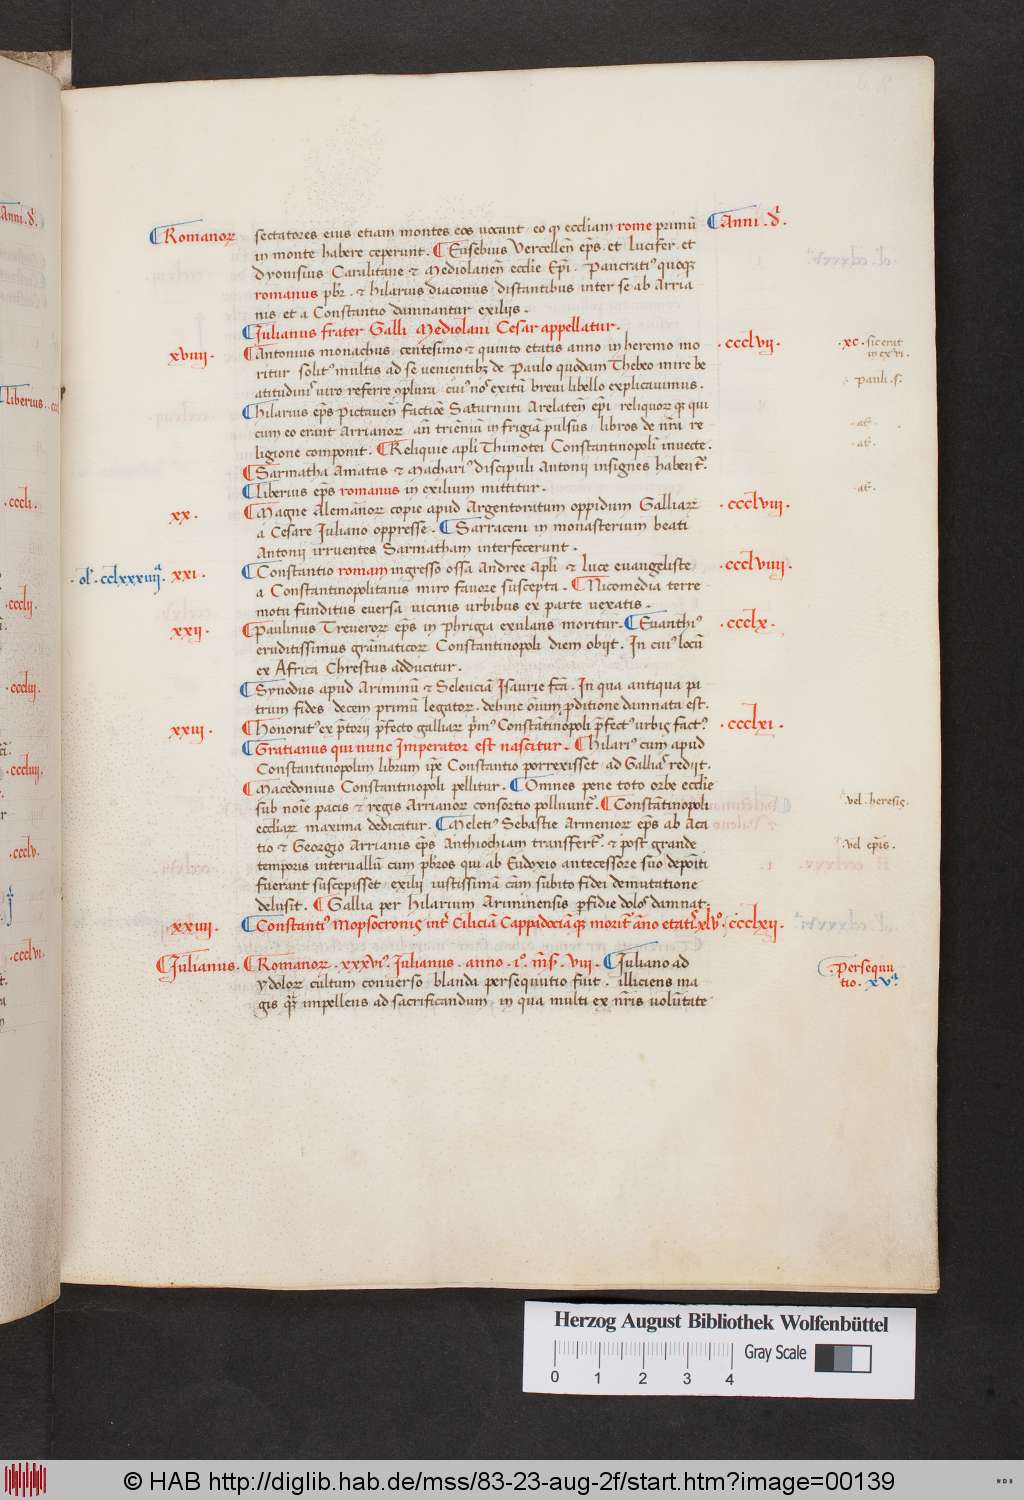 ¶Romanoꝝ
sectatores eius etiam montes eos uocant · eo ꝙ eccliam rome primū
¶Anni · dı̄ ·
in monte habere ceperunt · ¶Eusebius Vercelleñ ep̄s · et lucifer · et
Dyonisius · Caralitane ⁊ Mediolaneñ ecclie Ep̄i · Pancratiꝰ quoqꝫ
romanus pbr̄ · ⁊ hilarius diaconus · distantibus inter se ab Arria
nis et a Constantio damnantur exiliis ·
¶Iulianus frater Galli Mediolani Cesar appellatur ·
xviiii ·
¶Antonius monachus · centesimo ⁊ quinto etatis anno in heremo mo
· ccclvii ·
· xc · sic erat
in ex vi ·
ritur · solitꝰ multis ad se uenientibꝫ de Paulo quodam Thebeo mire be
· pauli · s ·
atitudinis uiro referre ꝯplura · cuiꝰ nos exitū breui libello explicauimus ·
¶hilarius ep̄s pictaueñ factiōe Saturnini Arelateñ ep̄i · reliquoꝝ qꝫ qui
cum eo erant Arrianoꝝ · añ trieniū in frigiam pulsus · libros de nr̄a re
· at̄ ·
ligione componit · ¶Reliquie apl̄i Thimotei Constantinopolī inuecte ·
· at̄ ·
¶Sarmatha Amatas ⁊ Machariꝰ discipuli Antonii insignes habent̄ ·
¶liberius ep̄s romanus in exilium mittitur ·
· at̄ ·
xx ·
¶Magne Alemanoꝝ copie apud Argentoratum oppidum Galliaꝝ
· ccclviii ·
a Cesare Iuliano oppresse · ¶Sarraceni in monasterium beati
Antonii irruentes Sarmatham interfecerunt ·
· ol̄ · cclxxxiiiı̄ ·
xxi ·
¶Constantio romam ingresso ossa Andree Apl̄i ⁊ luce euangeliste
· ccclviiii ·
a Constantinopolitanis miro fauore suscepta · ¶Nicomedia terre
motu funditus euersa uicinis urbibus ex parte uexatis ·
xxii ·
¶Paulinus Treueroꝝ ep̄s in phrigia exulans moritur · ¶Euanthiꝰ
· ccclx ·
eruditissimus gramaticoꝝ Constantinopoli diem obiit · In cuiꝰ locū
ex Africa Chrestus adducitur ·
¶Synodus apud Ariminū ⁊ Seleuciā Isaurie fc̄a · In qua antiqua pa
trum fides decem primū legatoꝝ · dehinc oīum ꝓditione damnata est ·
xxiii ·
¶Honoratꝰ ex p̄torii p̄fecto galliaꝝ p̄mꝰ Constātinopoli p̄fectꝰ urbis factꝰ ·
· ccclxi ·
¶Gratianus qui nunc Imperator est nascitur · ¶hilariꝰ cum apud
Constantinopolim librum ip̄e Constantio porrexisset · ad Galliās rediit ·
¶Macedonius Constantinopoli pellitur · ¶Omnes pene toto orbe ecclie
· vel · heresis ·
sub noīe pacis ⁊ regis Arrianoꝝ consortio polluunt̄ · ¶Constātinopoli
eccliaꝝ maxima dedicatur · ¶Meletiꝰ Sebastie Armenioꝝ ep̄s ab Aca
· vel ep̄is ·
tio ⁊ Georgio Arrianis ep̄s Anthiochiam transfert̄ · ⁊ post grande
temporis interuallū cum pbr̄os qui ab Eudoxio antecessore suo depositi
fuerant suscepisset · exilii iustissimā cām subito fidei demutatione
delusit · ¶Gallia per hilarium Ariminensis ꝑfidie dolos damnat ·
xxiiii ·
¶Constantiꝰ Mopsocronis int̄ Ciliciā Cappadociāqꝫ morit̄ āno etatis xlvꝰ ·
· ccclxii ·
¶Iulianus ·
¶Romanoꝝ · xxxviꝰ · Iulianus · anno · iº · mēs · viii · ¶Iuliano ad
¶ · persequu
ydoloꝝ cultum conuerso blanda persequutio fuit · illiciens ma
tio · xvᵃ ·
gis quā impellens ad sacrificandum · in qua multi ex nr̄is voluntate
Anni · dı̄ ·
liberius ·
· cccli ·
· ccclii ·
· cccliii ·
· cccliiii ·
· ccclv ·
· ccclvi ·
Herzog August Bibliothek Wolfenbüttel
Gray Scale
0 1 2 3 4
© HAB http://diglib.hab.de/mss/83-23-aug-2f/start.htm?image=00139